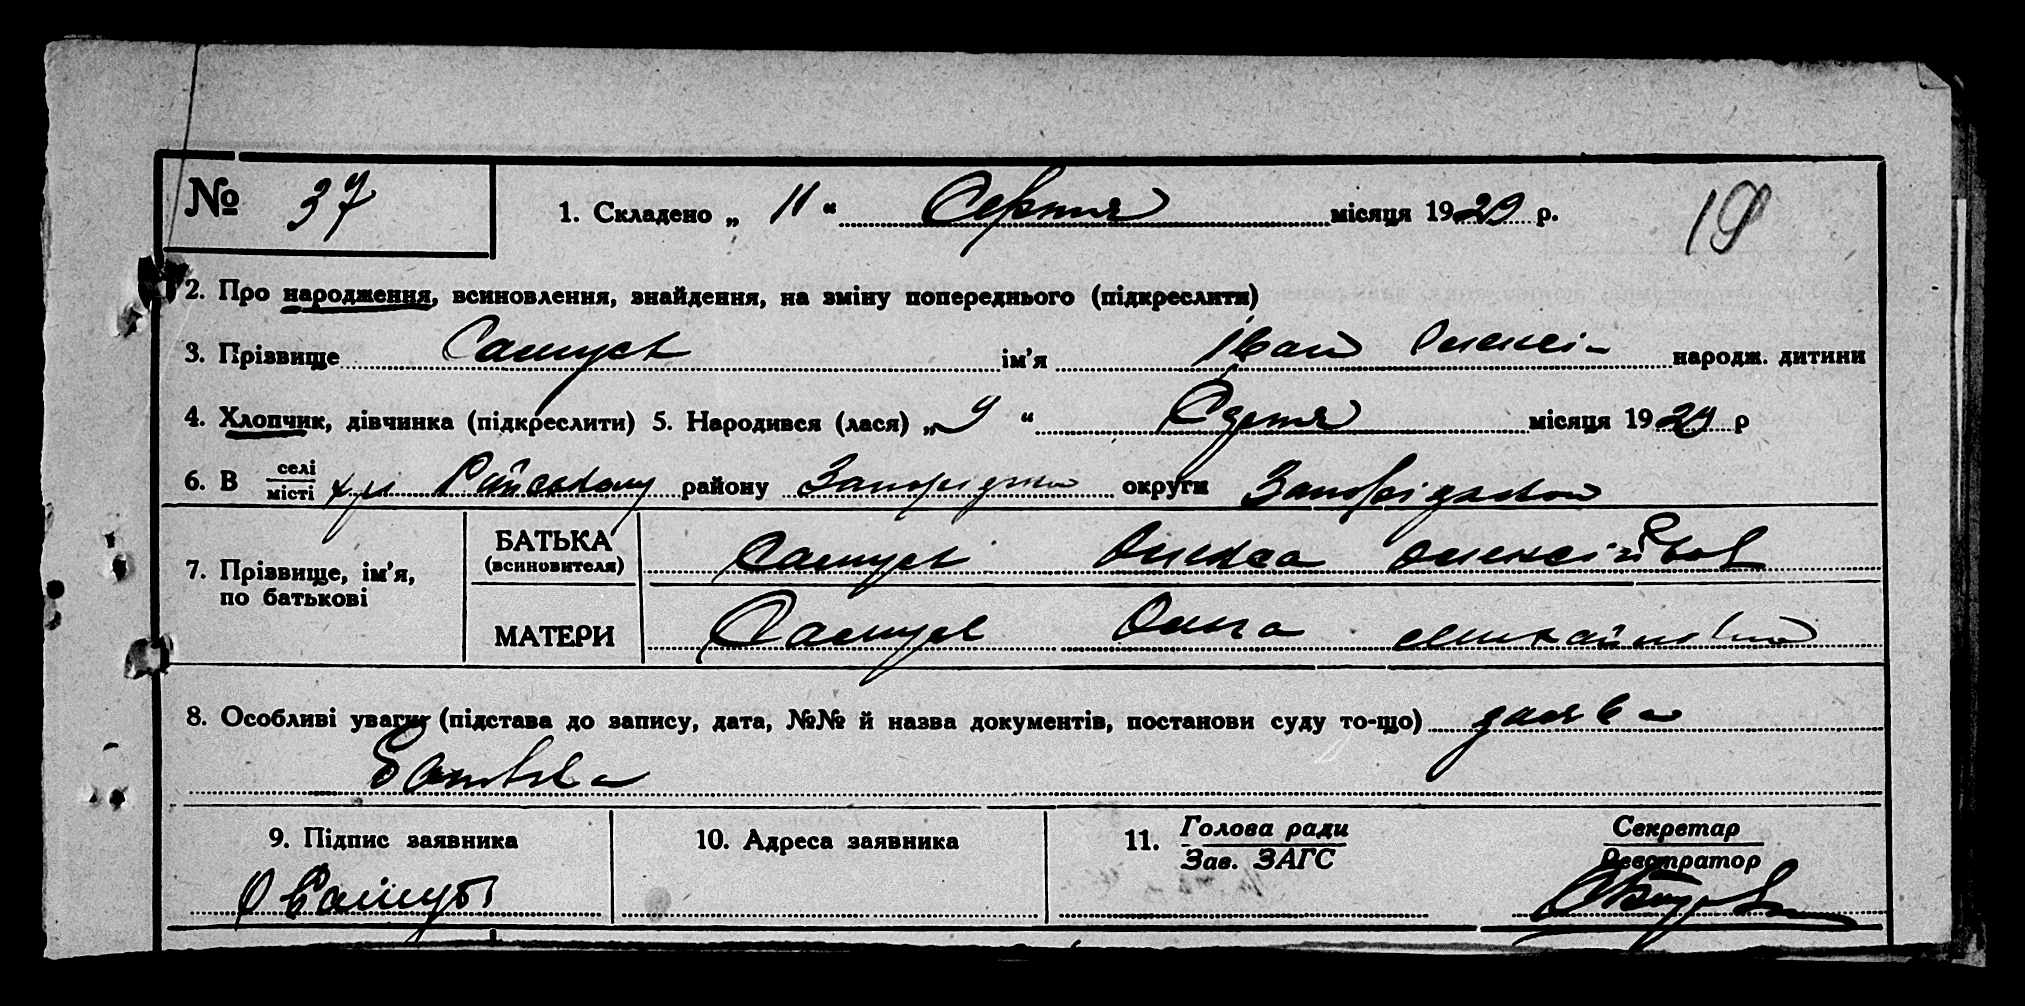 № 37
1. Складено „ 11 “ Серпня місяця 1929 р.
19
2. Про народження, всиновлення, знайдення, на зміну попереднього (підкреслити)
3. Прізвище Самусь ім’я Іван народж. дитини
4. Хлопчик, дівчинка (підкреслити) 5. Народився (лася) „ “ місяця 1929 р
6. В селі
місті району округи
7. Прізвище, ім’я,
по батькові
БАТЬКА
(всиновителя)
Самусь Олекса Олексійов
МАТЕРИ
Самусь Ольга
8. Особливі уваги (підстава до запису, дата, №№ й назва документів, постанови суду то-що) заява
батька
9. Підпис заявника
10. Адреса заявника
11. Голова ради
Зав. ЗАГС
Секретар
Реєстратор
О Самусь